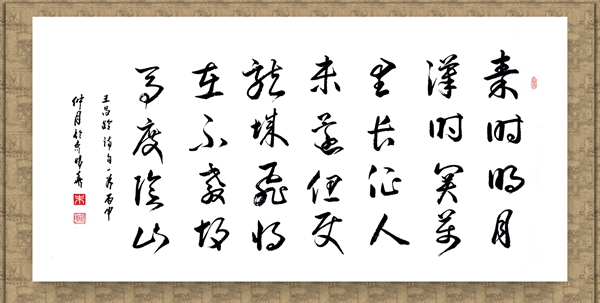 秦时明月
漢时关萬
里长征人
未还但使
龙城飛将
在不教胡
马度陰山
王昌龄诗句一首丙申
仲月於